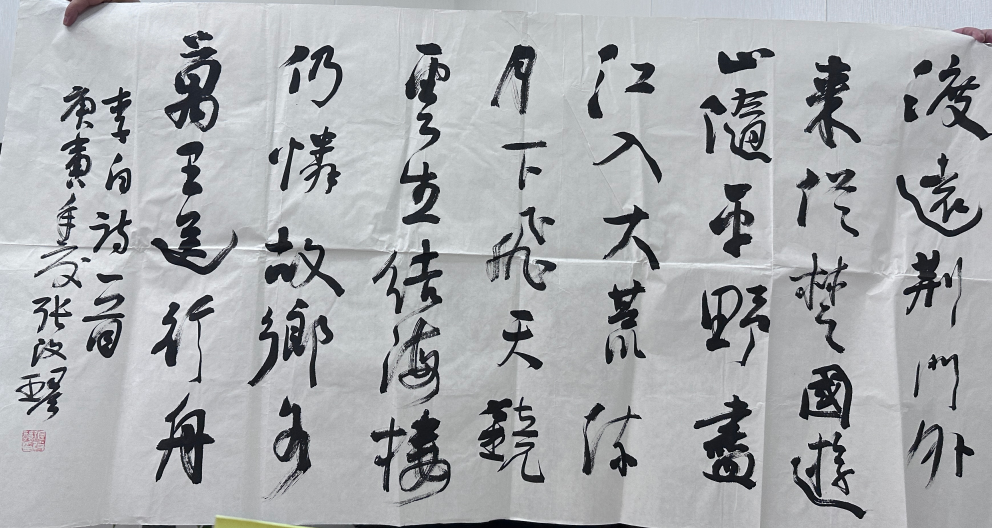 渡遠荆門外
來從楚國遊
山隨平野盡
江入大荒流
月下飛天鏡
雲生結海樓
仍憐故鄉水
萬里送行舟
李白詩一首
庚寅年夏张改琴